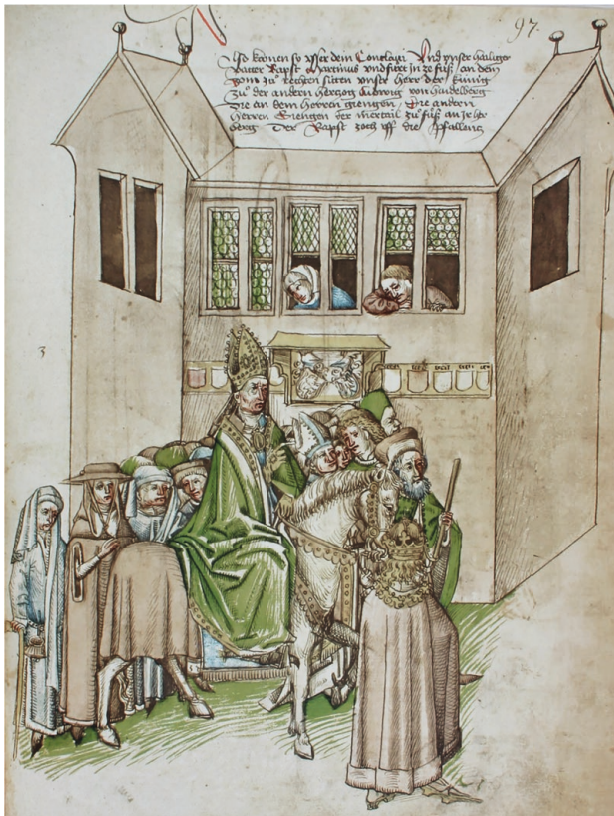 97.
Also komen sy vsser dem Conclaui Vnd vnser hailiger
vatter Bapst Martinus vnd fůrt in ze fůß an dem
zom zu rechten sitten vnser herr der künig
zů der andern hertzog Ludwig von haidelberg
Die an dem herren giengen / Die andern
herren Giengen der mertail zů fůß
berg Der Bapst zoch vff die pfallentz
3